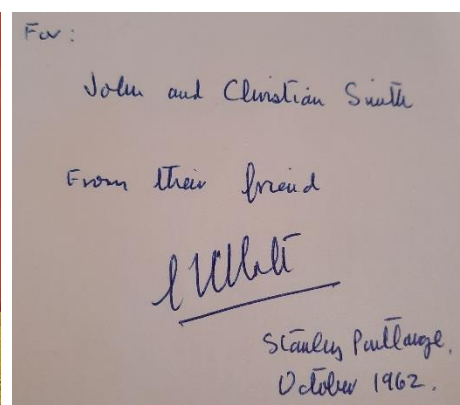 For:
John and Christian Smith
From their friend
LTC Rolt
Stanley Pontlarge.
October 1962.